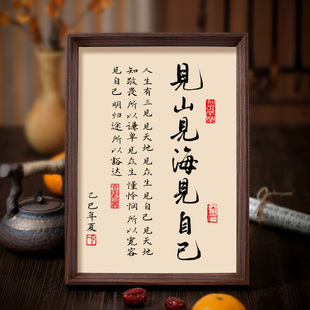 見山見海見自己
人生有三見見天地見衆生見自己見天地
知敬畏所以謙卑見衆生懂憐憫所以寬容
見自己明归途所以豁达
乙巳年夏